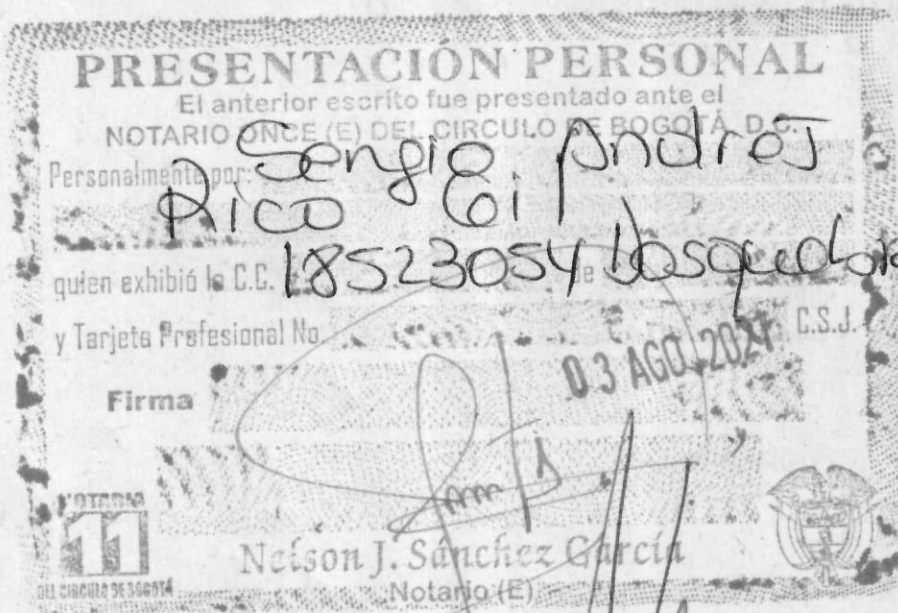 PRESENTACIÓN PERSONAL
El anterior escrito fue presentado ante el
NOTARIO ONCE (E) DEL CIRCULO DE BOGOTÁ, D.C.
Personalmente por: Sergio Andres
Rico Gi
quien exhibió la C.C. 18523054 de Dosquebra
y Tarjeta Profesional No. C.S.J.
03 AGO 2021
Firma
NOTARIA
11
DEL CIRCULO DE BOGOTÁ
Nelson J. Sánchez García
Notario (E)